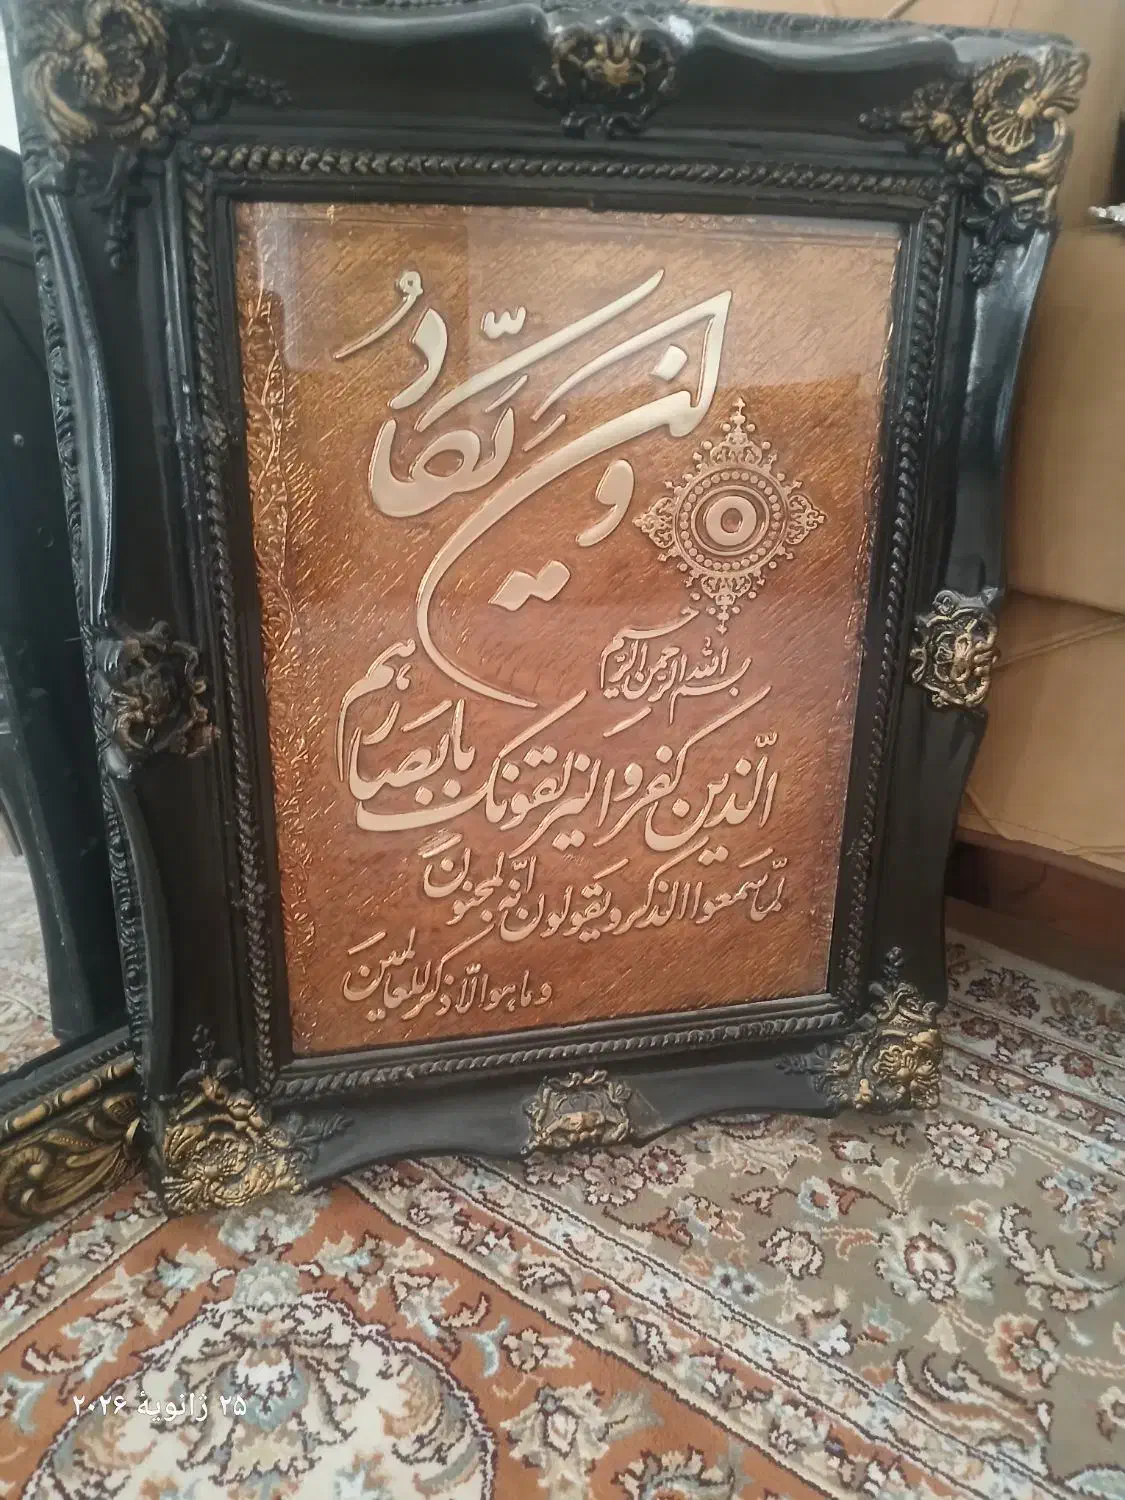 وَإِن يَكَادُ
بسم الله الرحمن الرحیم
الّذین کفروا لیزلقونک بابصارهم
لمّا سمعوا الذکر و یقولون انّه لمجنون
و ما هو الّا ذکر للعالمین
۲۵ ژانویهٔ ۲۰۲۶